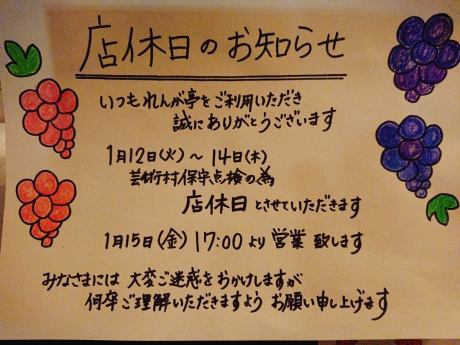 店休日のお知らせ
いつもれんが亭をご利用いただき
誠にありがとうございます
1月12日(火)～14日(木)
芸術村保守点検の為
店休日とさせていただきます
1月15日(金)17:00より営業致します
みなさまには大変ご迷惑をおかけしますが
何卒ご理解いただきますようお願い申し上げます